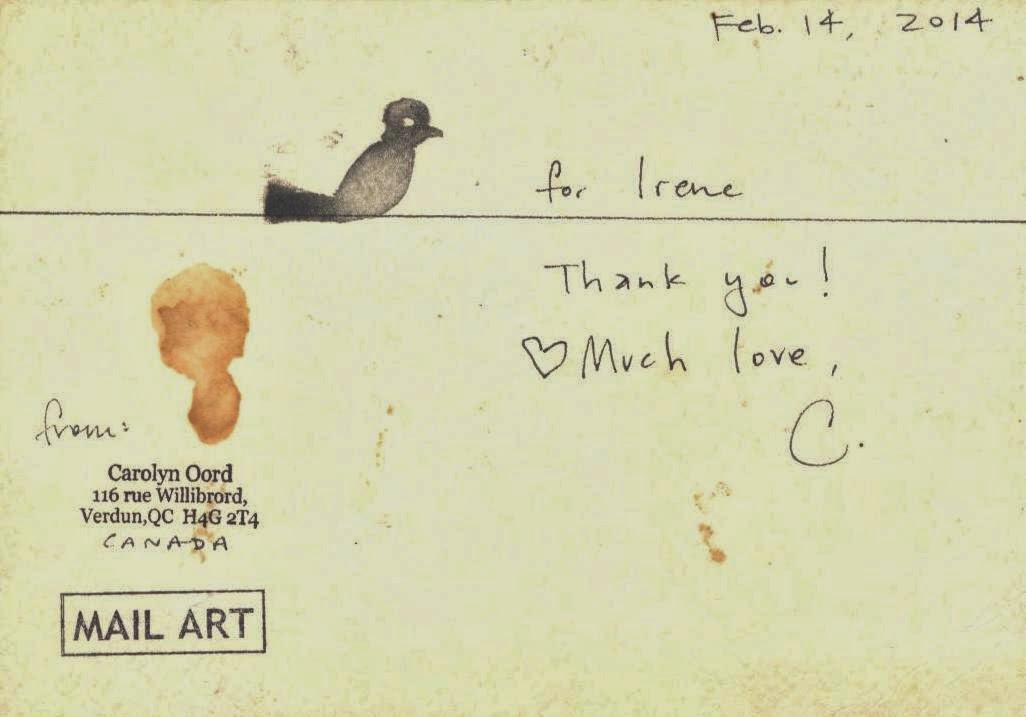 Feb. 14, 2014
for Irene
Thank you!
♡ Much love,
C.
from:
Carolyn Oord
116 rue Willibrord,
Verdun,QC H4G 2T4
CANADA
MAIL ART